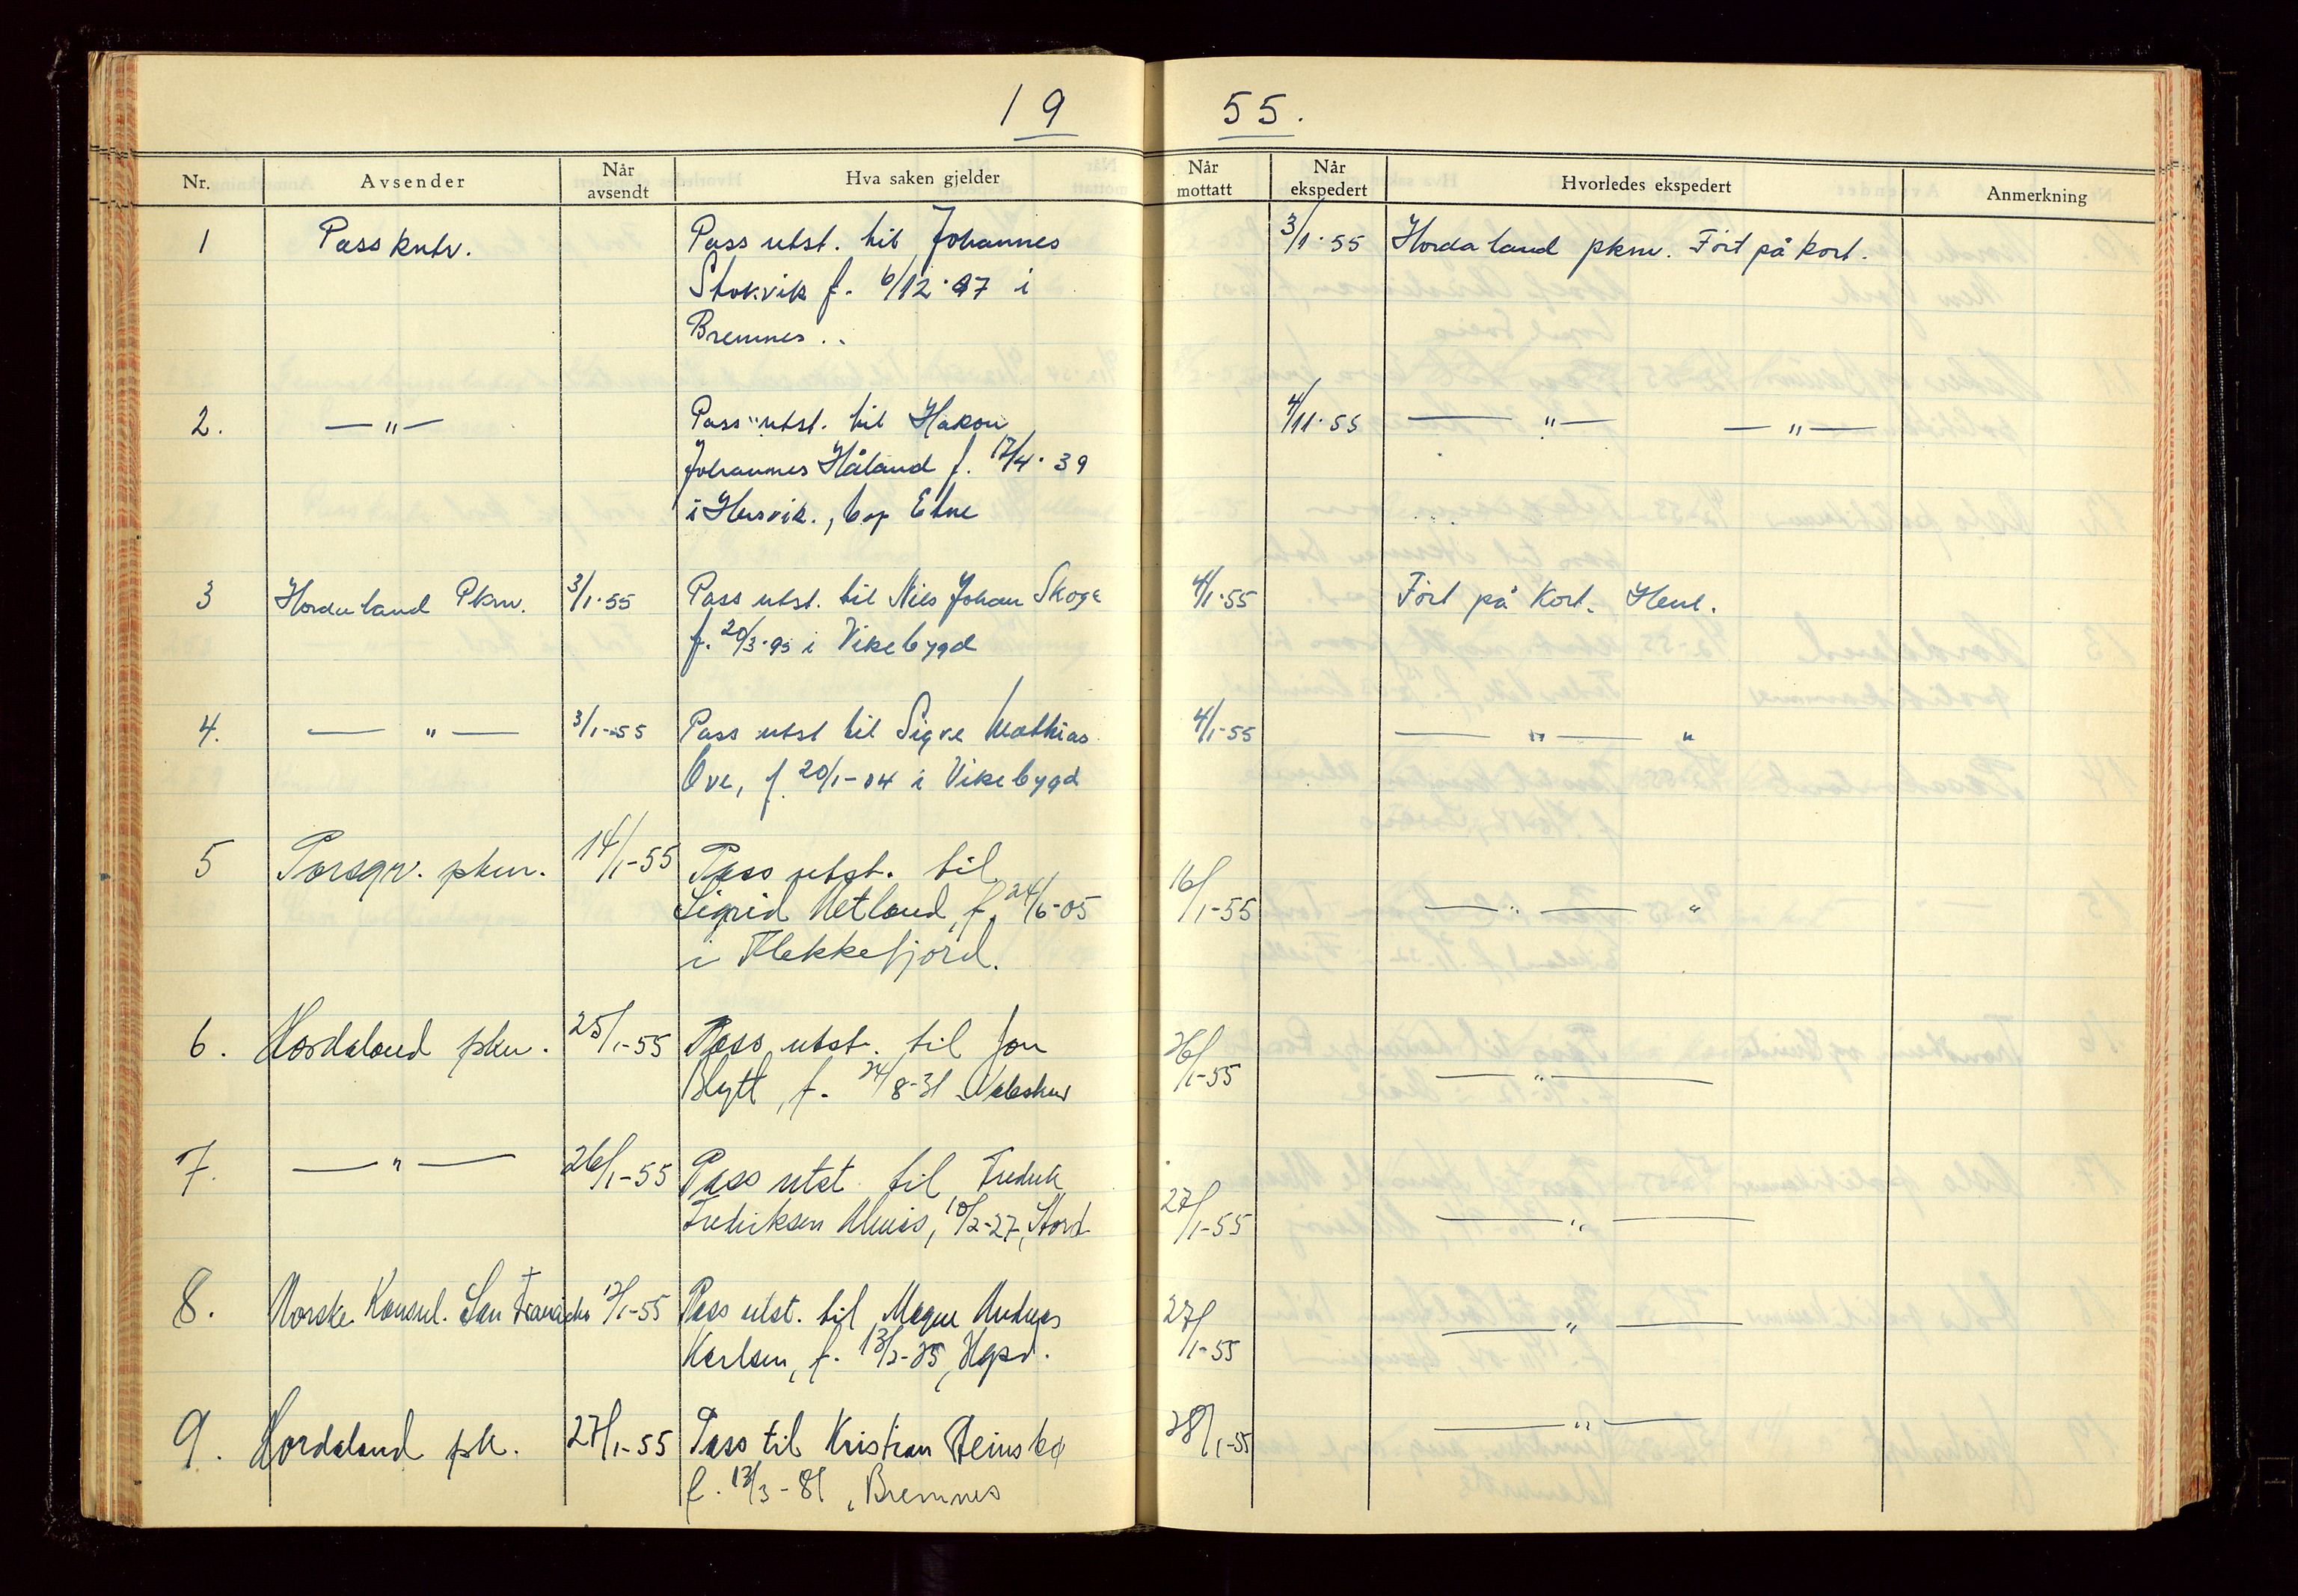 19 55.
Nr. Avsender Når avsendt Hva saken gjelder Når mottatt Når ekspedert Hvorledes ekspedert Anmerkning
1 Passkntr. Pass utst. til Johannes 3/1-55 Hordaland pkm. Ført på kort.
Stokvik f. 6/12-97 i
Bremnes..
2. —"— Pass utst. til Hakon 4/11-55 —"— —"—
Johannes Håland f. 17/4-39
i Husvik., bop Etne
3 Hordaland Pkm. 3/1-55 Pass utst. til Nils Johan Skoge 4/1-55 Ført på Kort. Henl.
f. 20/3-95 i Vikebygd
4. —"— 3/1-55 Pass utst til Sigve Mathias 4/1-55 —"— "
Ove, f. 20/1-04 i Vikebygd
5 Porsgr. pkm. 14/1-55 Pass utst. til
Sigrid Netland, f. 24/6-05 16/1-55 —"— "
i Flekkefjord.
6. Hordaland pkm. 25/1-55 Pass utst. til Jon 26/1-55 —"—
Blytt, f. 24/8-31
7. —"— 26/1-55 Pass utst. til Fredrik 27/1-55 —"—
Fredriksen 10/2-27, Stord
8. Norske Konsul. San Francisco 17/1-55 Pass utst. til Magne Andreas 27/1-55 —"—
Karlsen, f. 13/2-25, Hgsd.
9. Hordaland pk. 27/1-55 Pass til Kristian Steinsbø 28/1-55 —"—
f. 13/3-81, Bremnes